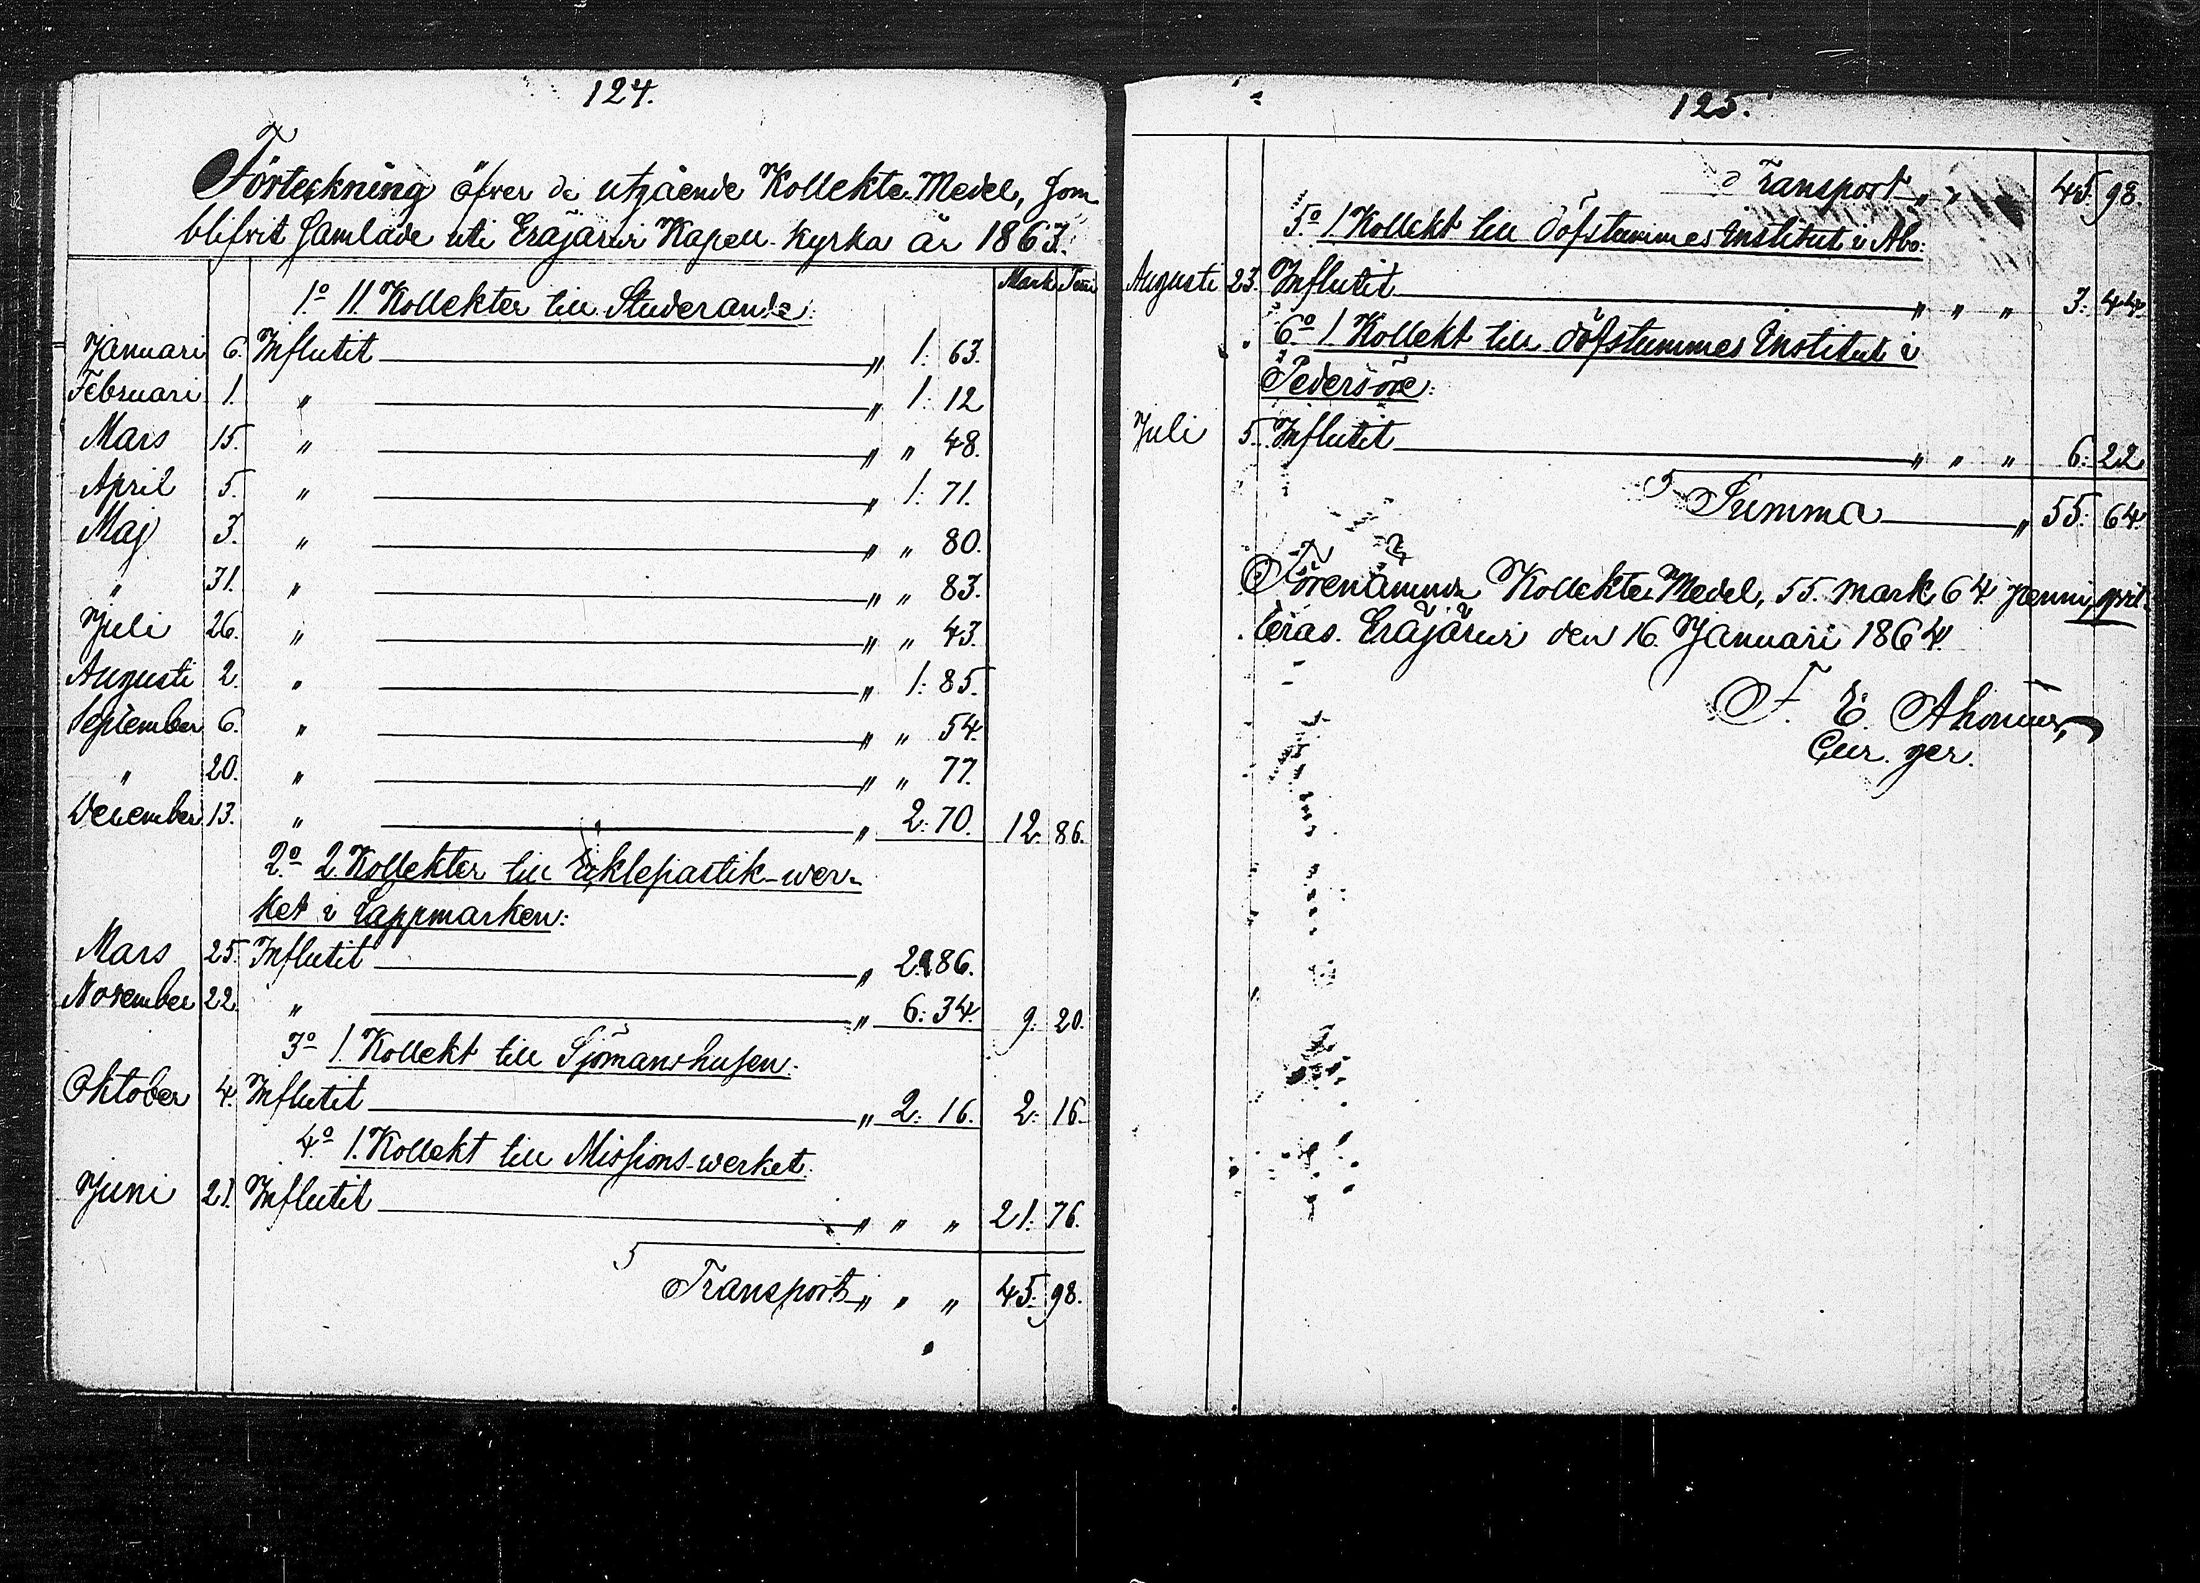 124.
Förteckning öfver de utgående Kollekte Medel, som
blifvit samlade uti Eräjärvi Kapell-kyrka år 1863.
Mark Penni
1o 11 Kollekter till Studerande:
Januari 6. Influtit " 1: 63.
Februari 1. " " 1: 12
Mars 15. " " " 48.
April 5. " " 1: 71.
Maj 3. " " " 80.
" 31. " " " 83.
Juli 26. " " " 43.
Augusti 2. " " 1: 85.
September 6. " " " 54.
" 20. " " " 77.
December 13. " " 2: 70. 12: 86.
2o 2 Kollekter till Ecklesiastik-wer-
ket i Lappmarken:
Mars 25. Influtit " 2: 86.
November 22. " " 6: 34. 9: 20.
3o 1. Kollekt till Sjömanshusen:
Oktober 4. Influtit " 2: 16. 2: 16.
4o 1. Kollekt till Missions-werket:
Juni 21. Influtit " " " 21: 76.
Transport " " " 45: 98.
125.
Transport " " " 45: 98.
5o 1 Kollekt till döfstummes Institut i Åbo:
Augusti 23. Influtit " " " 3: 44.
6o 1. Kollekt till döfstummes Institut i
Pedersöre:
Juli 5. Influtit " " " 6: 22
Summa " 55: 64.
Förenämnda Kollekte Medel, 55. mark 64 penni, qvit-
teras. Eräjärvi den 16 Januari 1864.
F. E. Ahonius,
Cur. ger.